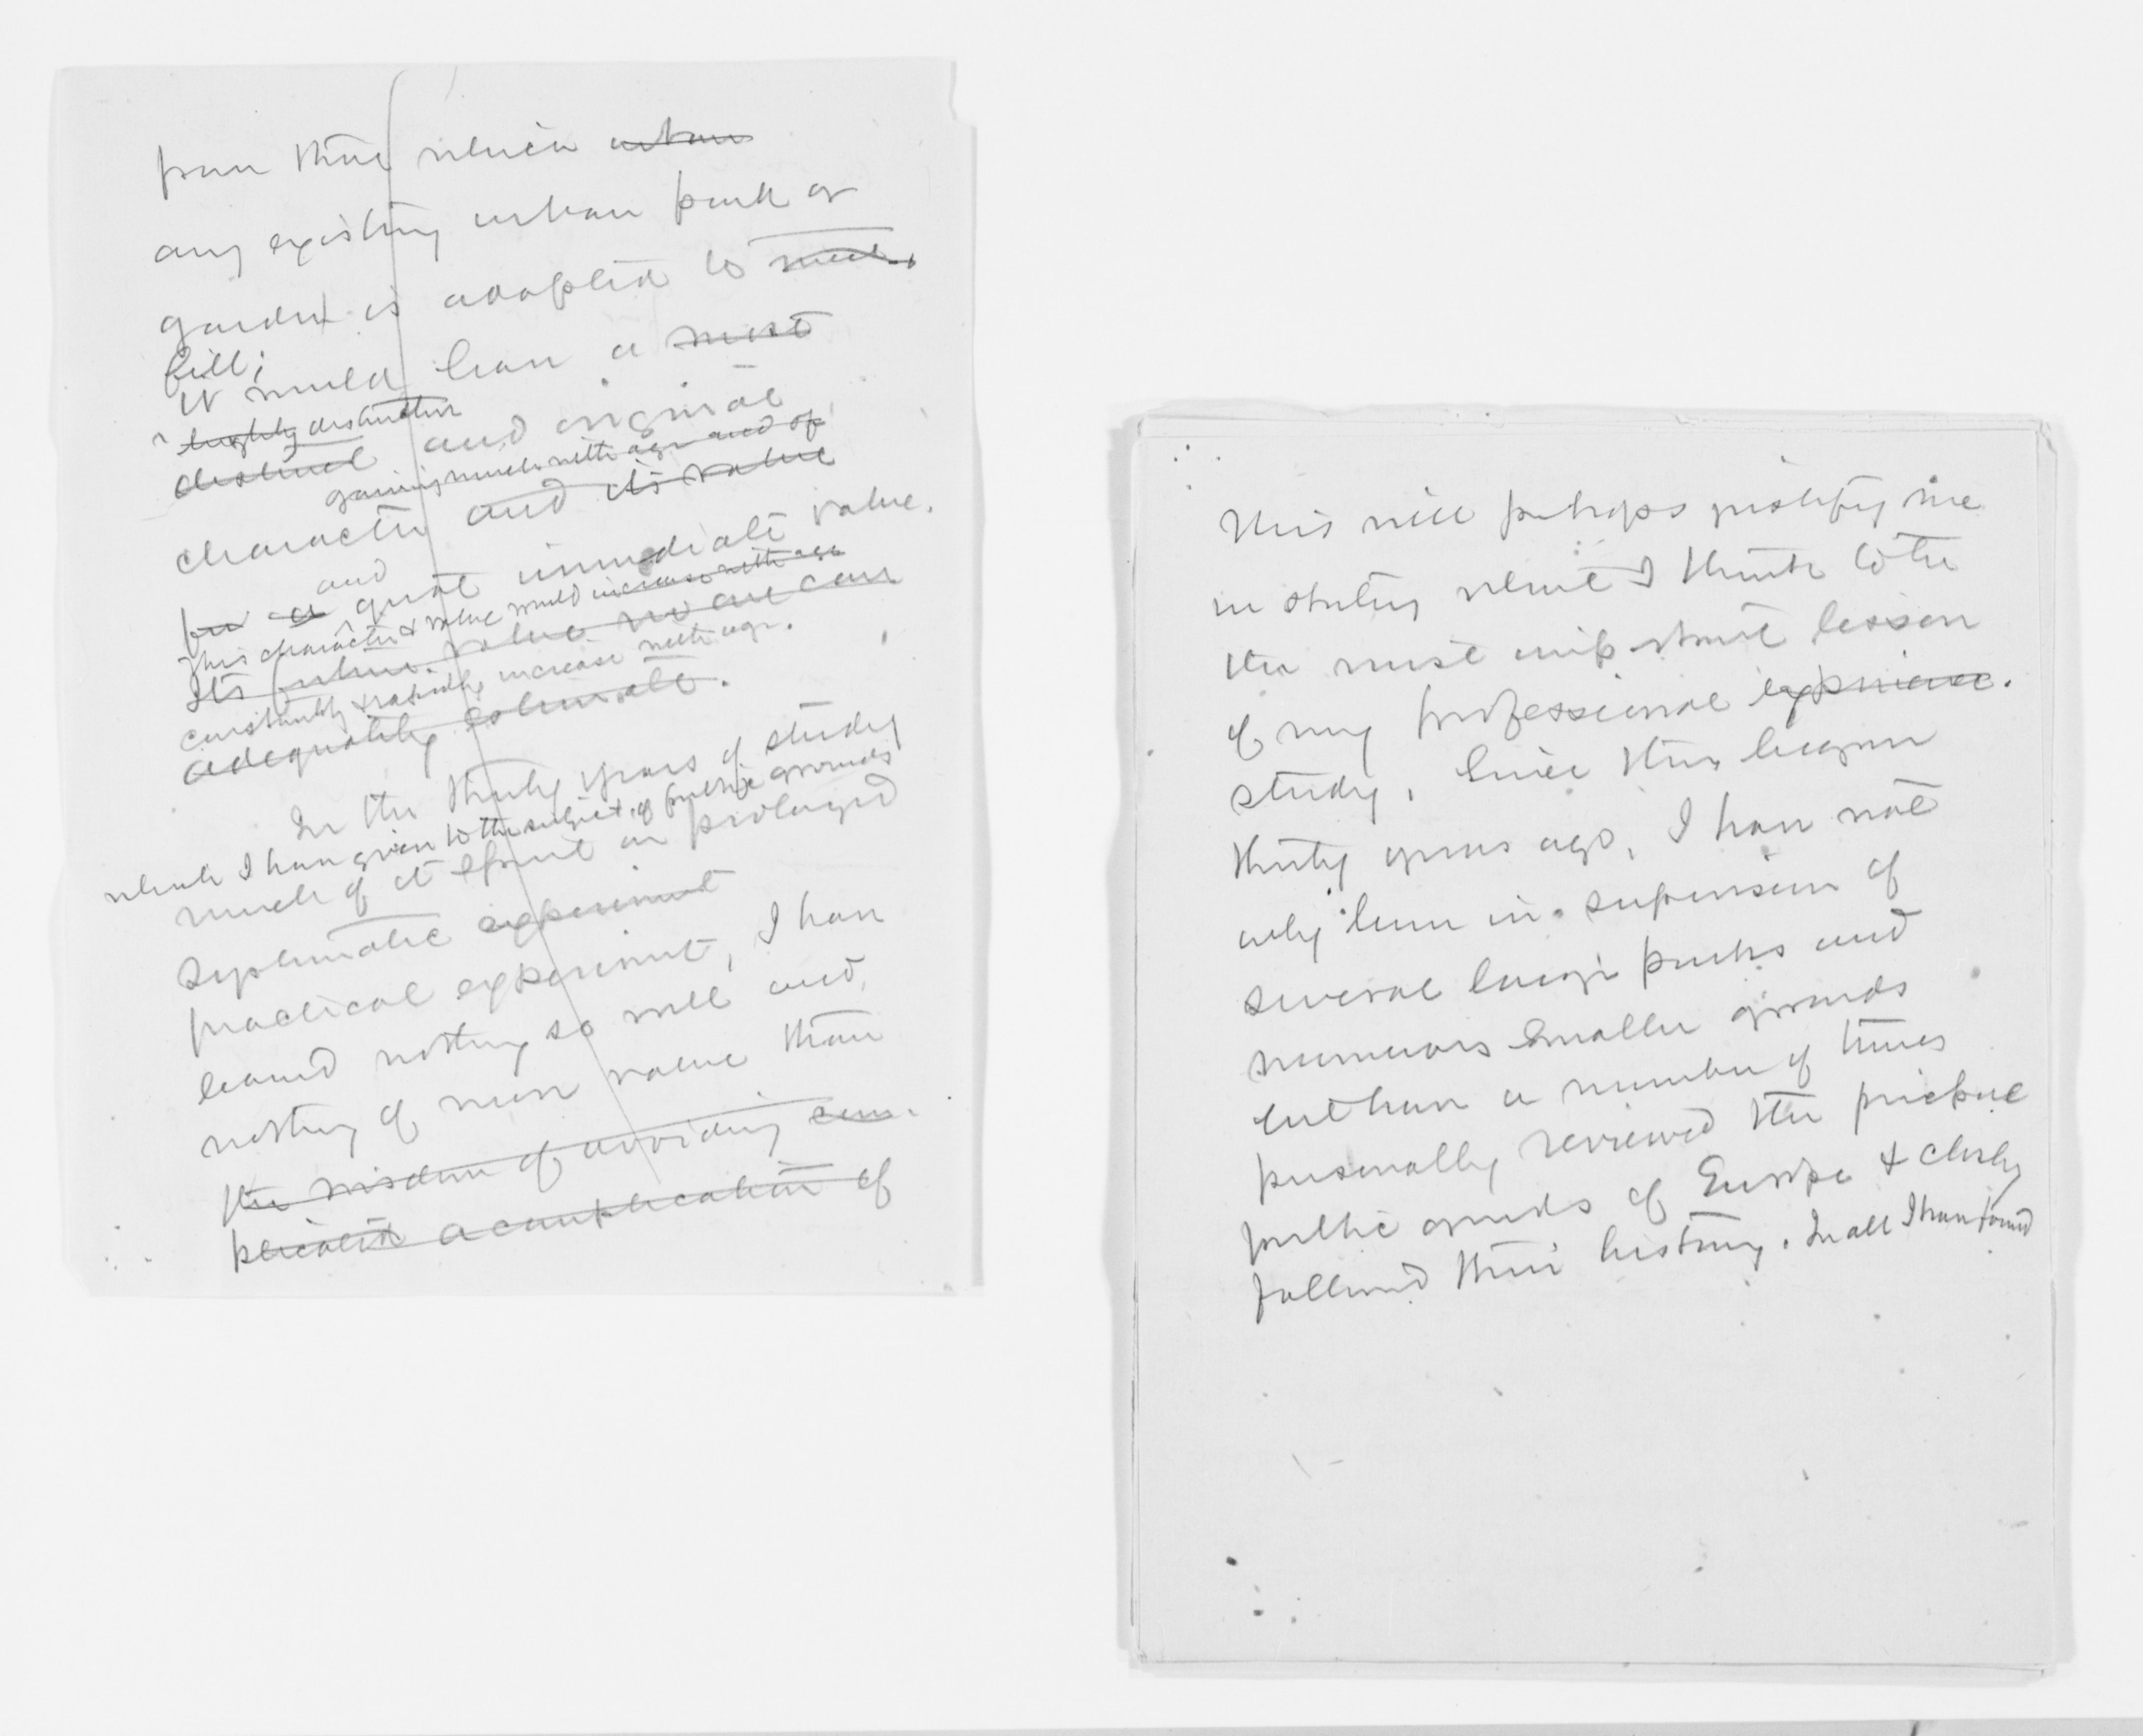 from that which urban
any existing urban park or
garden is adapted to meet
fill;
It would have a most
highly distinctive
distinct and original
gaining much with age and of
character and its value
and
for a great immediate value.
This character & value would increase with age
Its future value no one can
constantly & rapidly increase with age.
adequately estimate.
In the thirty years of study
which I have given to the subject of public grounds
much of it spent in prolonged
systematic experiment
practical experiment, I have
learned nothing so well and
nothing of more value than
the wisdom of avoiding com-
plicated a complication of
This will perhaps justify me
in stating what I think to be
the most important lesson
of my professional experience.
study. Since this began
thirty years ago, I have not
only been in supervision of
several large parks and
numerous smaller grounds
but have a number of times
personally reviewed the principal
public grounds of Europe & closely
followed their history. In all I have found